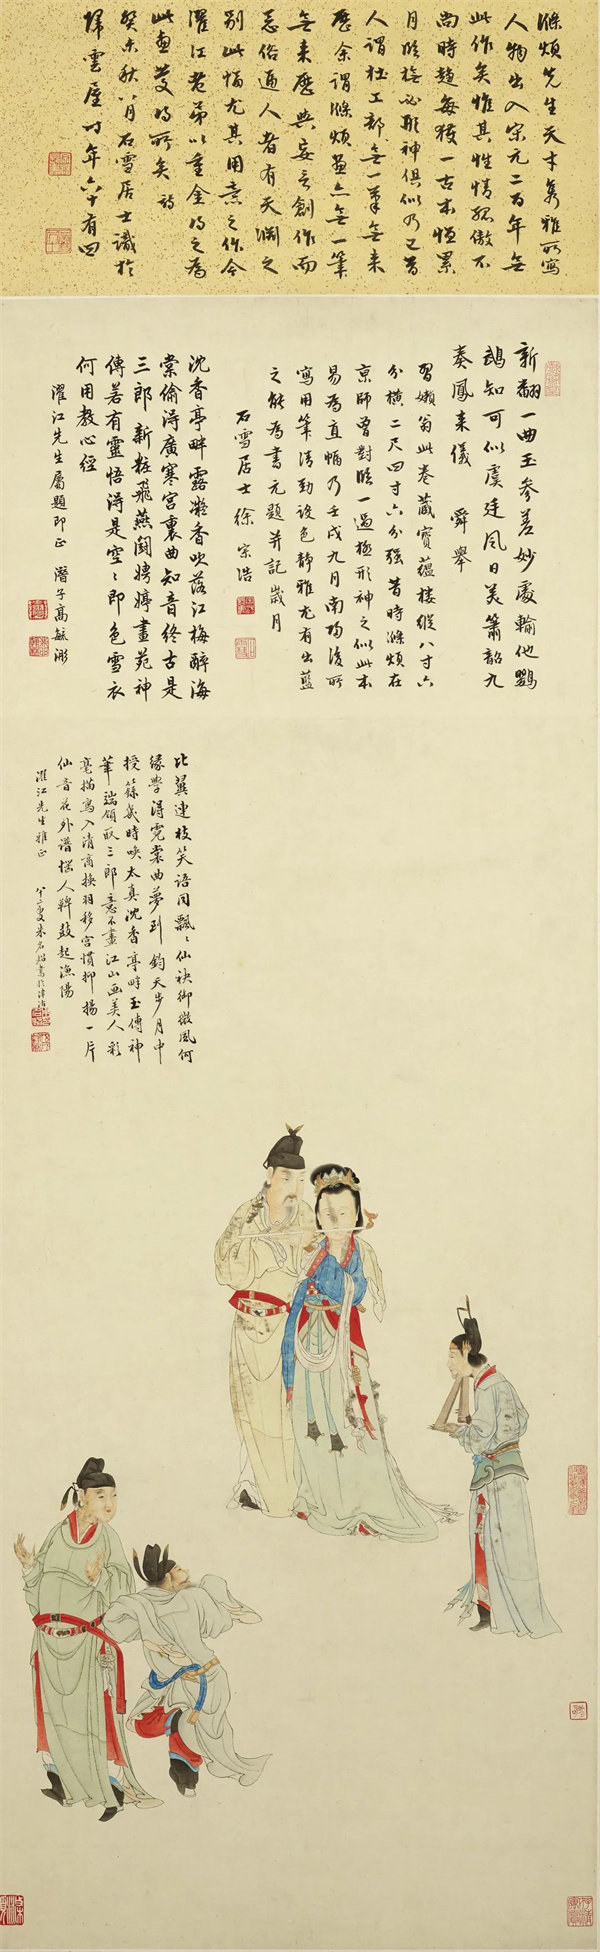 滌煩先生天才雋雅所寫
人物出入宋元二百年無
此作矣惟其性情孤傲不
尚時趨每獲一古本恒累
月臨摹必形神俱似乃已昔
人謂杜工部無一筆無来
歷余謂滌煩畫亦無一筆
無来歷與妄言創作而
忘俗逼人者有天淵之
别此幅尤其用意之作今
濯江老弟以重金得之為
此畫慶得所矣詩
癸未秋八月石雪居士識於
歸雲厓時年六十有四
新翻一曲玉參差妙處輸他鸚
鵡知可似虞廷風日美簫韶九
奏鳳来儀 舜舉
習嬾翁此卷藏寶蘊樓縱八寸六
分横二尺四寸六分強昔時滌煩在
京師曾對臨一過極形神之似此本
易為直幅乃壬戌九月南歸後所
寫用筆清勁設色靜雅尤有出藍
之能為書元題并記歲月
石雪居士徐宗浩
沈香亭畔露凝香吹落江梅醉海
棠偷得廣寒宮裏曲知音終古是
三郎 新粧飛燕鬪娉婷畫苑神
傳若有靈悟得是空空即色雪衣
何用教心經
濯江先生屬題即正 潛子高毓浵
比翼連枝笑語同飄飄仙袂御微風何
緣學得霓裳曲夢到鈞天步月中
授籙幾時喚太真沈香亭畔玉傳神
筆端領取三郎意不畫江山画美人 彩
毫描寫入清商換羽移宮慣抑揚一片
仙音花外譜惱人鞞鼓起漁陽
濯江先生雅正